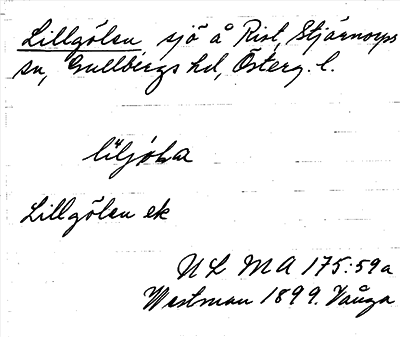 Lillgölen, sjö å Rist, Stjärnorps
sn, Gullbergs hd, Österg. l.
Lillgölen ek
UL MA 175:59a
Westman 1899. Vånga